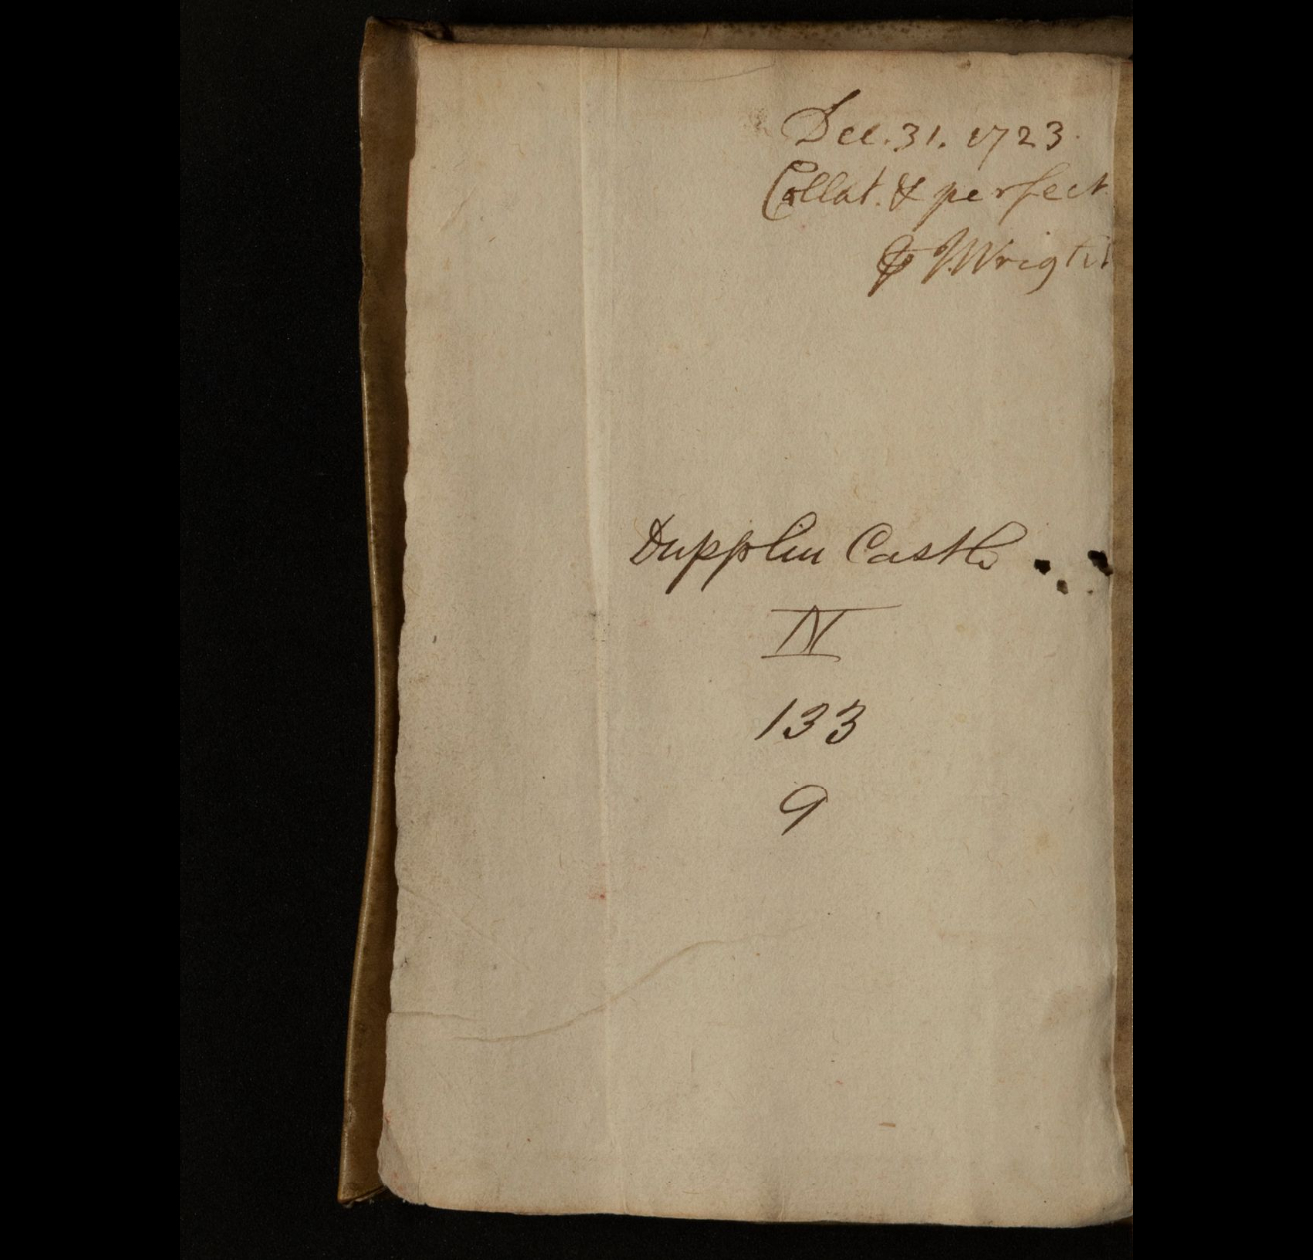 Dec. 31. 1723.
Collat. & perfect.
⅌ J Wright
Dupplin Castle
IV
133
9